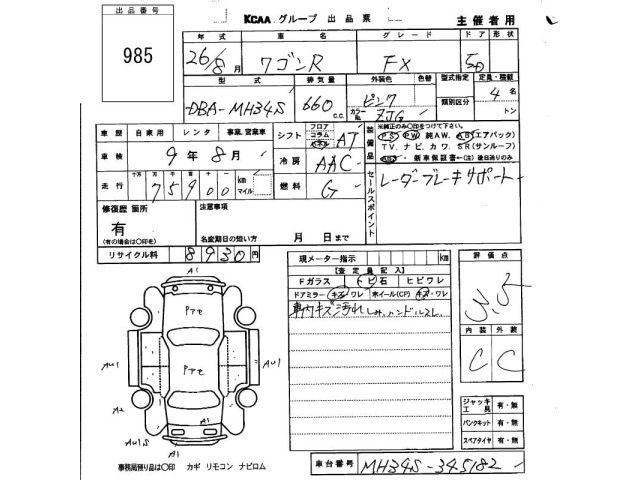 出品番号
985
KCAA グループ 出品票
主催者用
年式 車名 グレード ドア 形状
26/8月 ワゴンR FX 5D
型式 排気量 外装色 色替 型式指定 定員・積載
DBA-MH34S 660 c.c. ピンク 類別区分 4名
カラーNo. ZJG トン
車歴 自家用 レンタ 事業、営業車 シフト フロア コラム パネル AT
装備品 ※純正のみ○印をつけて下さい。
PS PW 純AW. AB(エアバック)
TV. ナビ. カワ. SR(サンルーフ)
ABS 新車保証書←(注)後日送りのみ
車検 9年8月 冷房 AAC
セールスポイント レーダーブレーキサポート
走行 十万 万 千 百 75900 km マイル 燃料 G
修復歴 箇所 注意事項
有
(有の場合は○印を) 名変期日の短い方 月 日まで
リサイクル料 8930円
現メーター指示 km
評価点
【査定員記入】
Fガラス トビ石 ヒビワレ
ドアミラー キズ・ワレ ホイール(CP) キズ・ワレ
車内キズ汚れ しみ、ハンドルスレ
3.5
内装 外装
C C
A1
Pアセ
AU1 AU1
Pアセ
A2
AU1S A1
A1
ジャッキ工具 有・無
パンクキット 有・無
スペアタイヤ 有・無
事務局預り品は○印 カギ リモコン ナビロム
車台番号 MH34S-345182